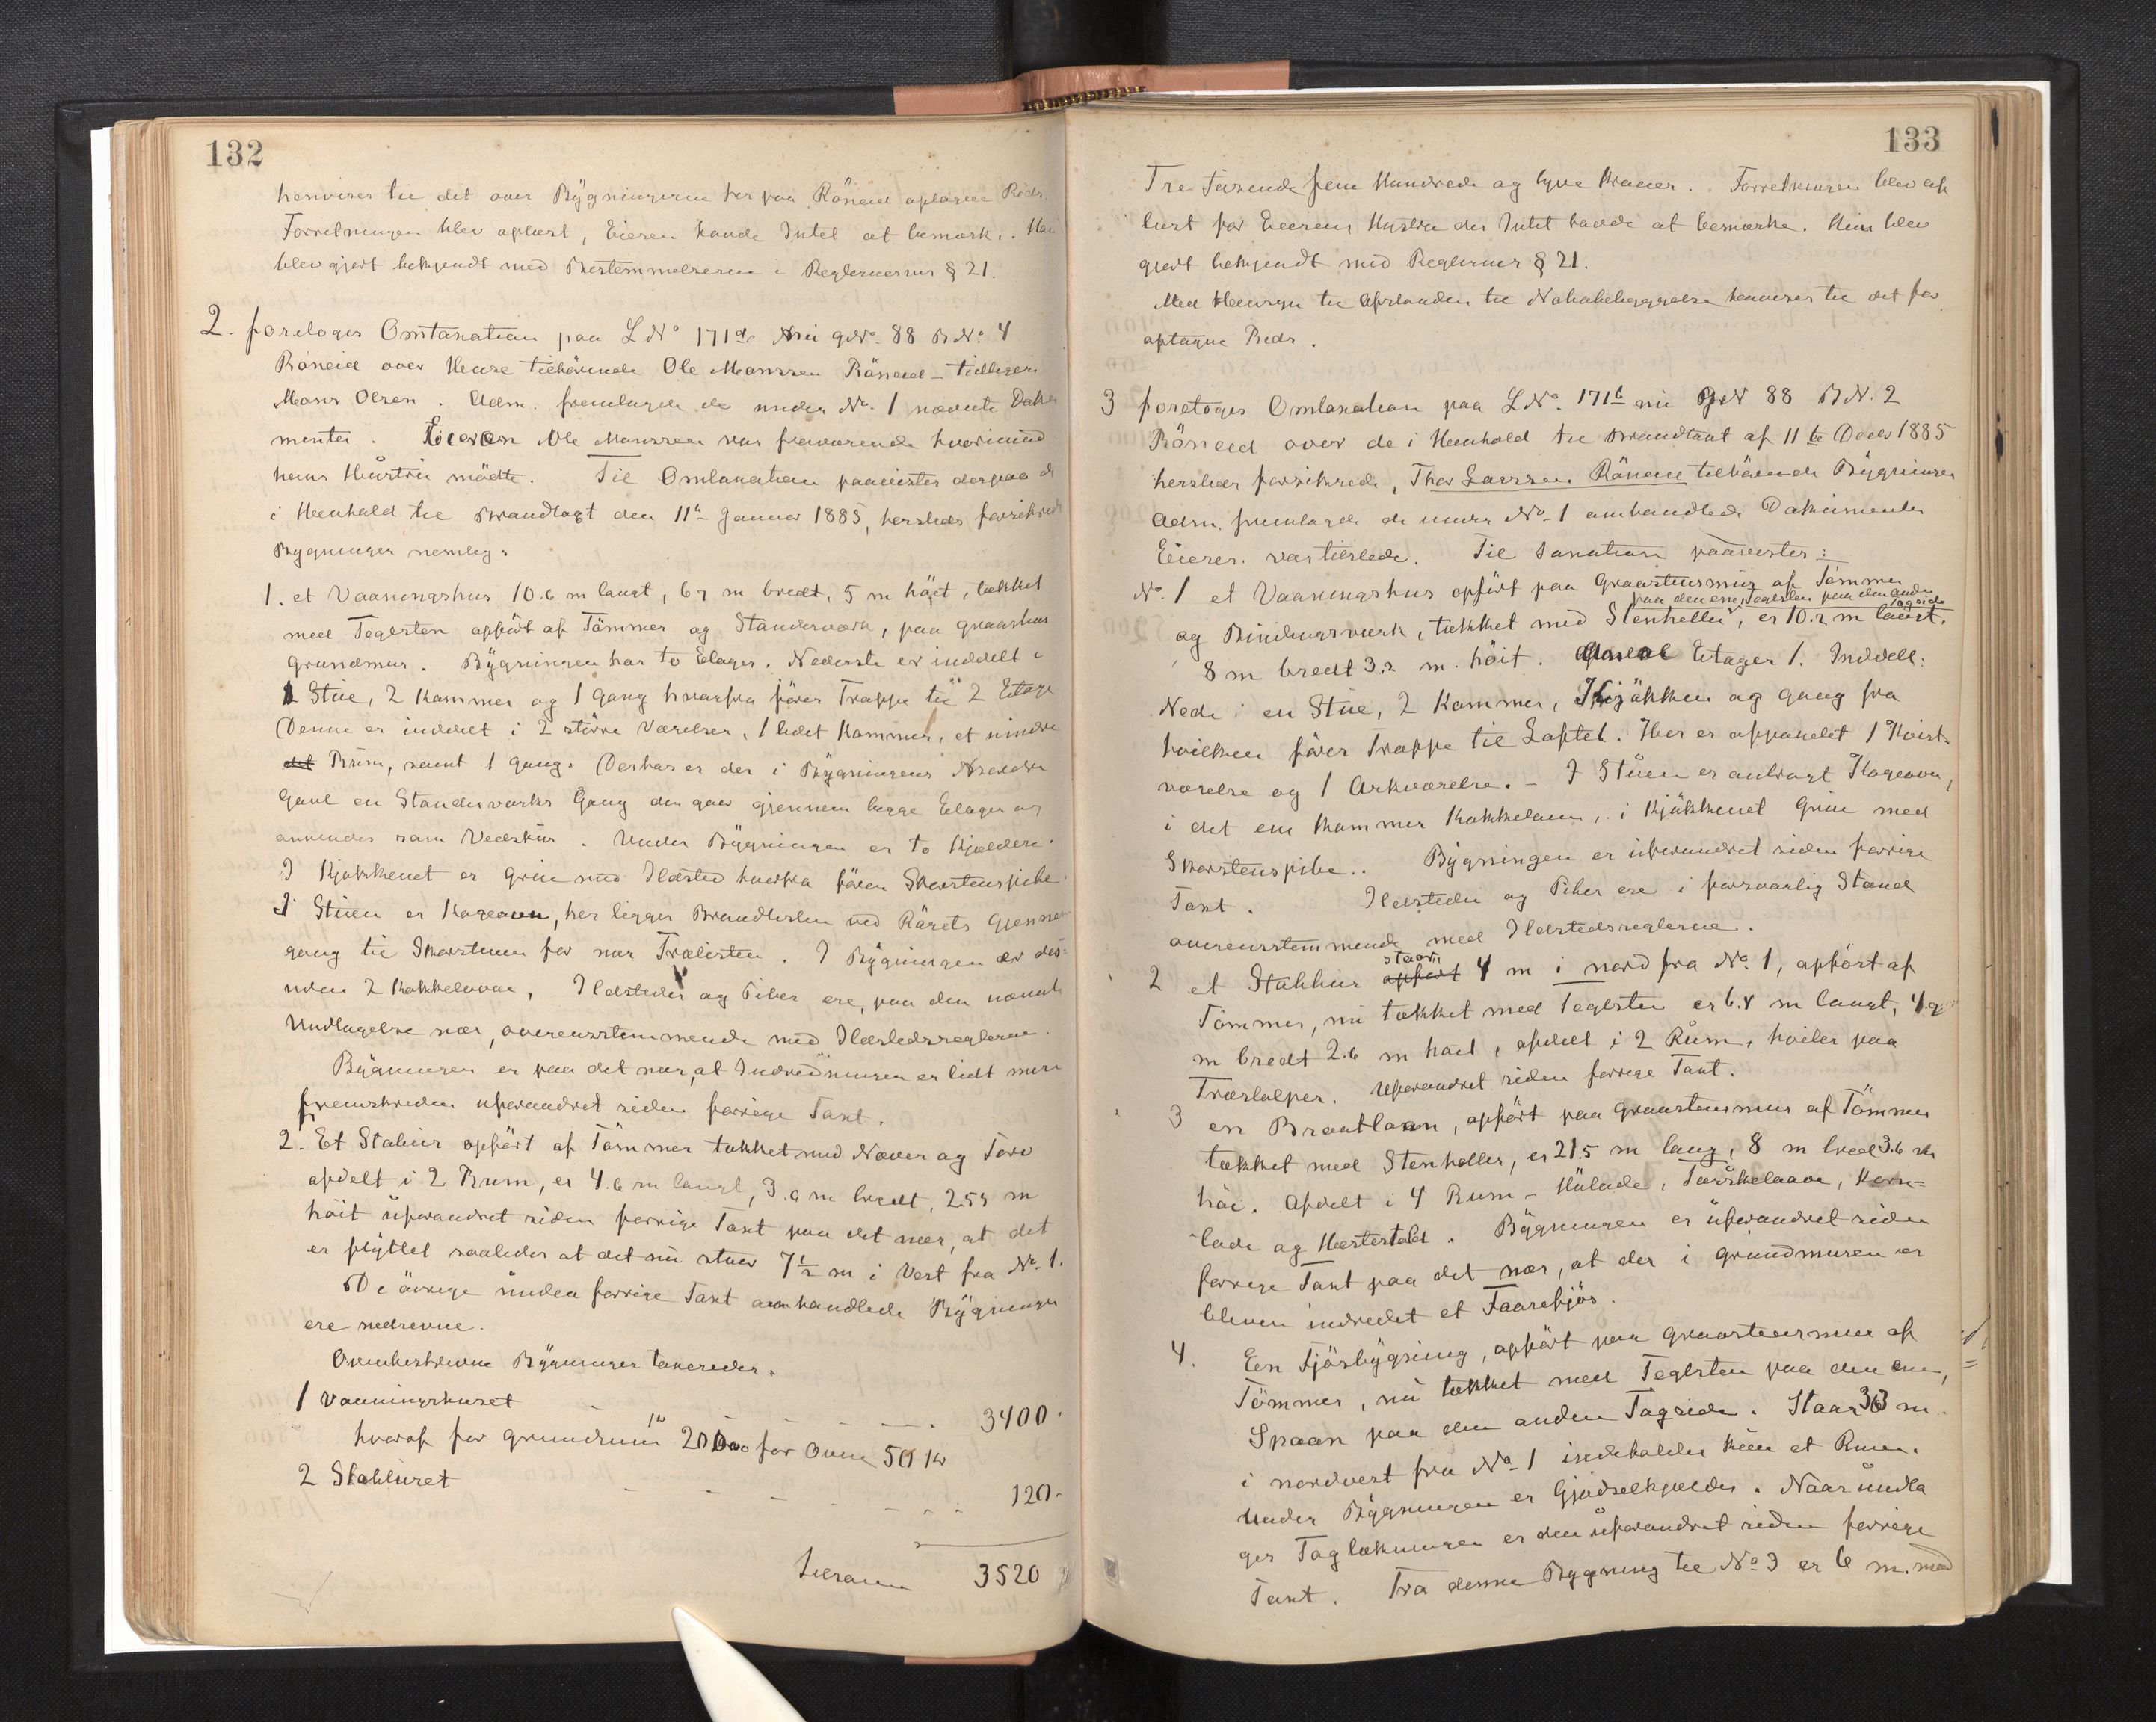 132
henviser til det over Bygningerne her paa Röneid optagne Rids.
Forretningen blev oplæst, Eieren havde Intet at bemærk.. Han
blev gjort bekjendt med Bestemmelserne i Reglernes § 21.
2. foretoges Omtaxation paa L N° 171 d nu g.N°. 88 B.N°. 4
Röneid over Huse tilhörende Ole Monssen Röneid - tidligere
Mons Olsen. Adm. fremlagde de under N°. 1 nævnte Doku
menter. Eieren Ole Monssen var fraværende hvorimod
hans Hustru mödte. Til Omtaxation paavistes derpaa de
i Henhold til Brandtagt den 11te Januar 1885, hersteds forsikrede
Bygninger nemlig:
1. et Vaaningshus 10.6 m langt, 6.7 m bredt, 5 m höit, tækket
med Teglsten opfört af Tömmer og Standerværk, paa graastens
grundmur. Bygningen har to Etager. Nederste er inddelt i
1 Stue, 2 Kammer og 1 gang hvorfra förer Trappe til 2 Etage
Denne er inddelt i 2 större Værelser, 1 lidet Kammer, et mindre
Rum, samt 1 gang. Desuden er der i Bygningens
Gavl en Standerværks Gang der gaar gjennem begge Etager og
anvendes som Vedskur. Under Bygningen er to Kjældere.
I Kjökkenet er Grue med Ildsted hvorfra förer Skorstenspibe.
I Stuen er Kogeovn, her ligger Brandtisten ved Rörets Gjennem
gang til Skorstenen for nær Trælisten. I Bygningen er des-
uden 2 Kakkelovne, Ildsteder og Piber ere, paa den nævnte
Undtagelse nær, overensstemmende med Ildstedsreglerne.
Bygningen er paa det nær, at Indredningen er lidt mere
fremskreden uforandret siden forrige Taxt.
2. Et Stabur opfört af Tömmer tækket med Næver og Torv
afdelt i 2 Rum, er 4.6 m langt, 3.9 m bredt, 2.55 m
höit uforandret siden forrige Taxt paa det nær, at det
er flyttet saaledes at det nu staar 7½ m i Vest fra N°. 1.
De övrige under forrige Taxt omhandlede Bygninger
ere nedrevne.
Ovenbeskrevne Bygninger taxeredes.
1 Vaaningshuset - - - - 3400.
hvoraf for grundmur 200 Kr for Ovne 50 Kr
2 Stabburet - - - - - 120.
Tilsammen 3520
133
Tre Tusende fem Hundrede og tyve Kroner. Forretningen blev op
læst for Eierens Hustru der Intet havde at bemærke. Hun blev
gjort bekjendt med Reglernes § 21.
Med Hensyn til Afstanden til Nabobebyggelse henvises til det for
optagne Rids.
3 foretoges Omtaxation paa L N°. 171 b nu g.N 88 B.N. 2
Röneid over de i Henhold til Brandtaxt af 11te Decbr 1885
hersteds forsikrede, Thor Larssen Röneid tilhörende Bygninger
Adm. fremlagde de under N°. 1 omhandlede Dokumenter
Eieren var tilstede. Til Taxation paavistes:
N°. 1 et Vaaningshus opfört paa Graastensmur af Tömmer
paa den ene, Teglsten paa den anden Tagside
og Bindingsværk, tækket med Stenheller, er 10.2 m langt,
8 m bredt 3.2 m. höit. Antal Etager 1. Inddelt:
Nede i en Stue, 2 Kammer, Kjökken og gang fra
hvilken förer Trappe til Loftet. Her er oppanelet 1 Kvist-
værelse og 1 Arkværelse. - I Stuen er anbragt Kogeovn,
i det ene Kammer Kakkelovn, i Kjökkenet Grue med
Skorstenspibe.. Bygningen er uforandret siden forrige
Taxt. Ildsteder og Piber ere i forsvarlig Stand
overensstemmende med Ildstedsreglerne.
2 et Stabbur opfört staar 4 m i nord fra N°. 1, opfört af
Tömmer, nu tækket med Teglsten er 6.4 m langt, 4.9
m bredt 2.6 m höit, afdelt i 2 Rum, hviler paa
Træstolper. Uforandret siden forrige Taxt.
3 en Braatloen, opfört paa graastensmur af Tömmer
tækket med Stenheller, er 21.5 m lang, 8 m bred 3.6 m
höi. Afdelt i 4 Rum - Hölade, Tærskelaave, Korn-
lade og Hestestald. Bygningen er uforandret siden
forrige Taxt paa det nær, at der i grundmuren er
bleven indredet et Faarefjös.
4. En Fjösbygning, opfört paa graastensmur af
Tömmer, nu tækket med Teglsten paa den ene,
Spaan paa den anden Tagside. Staar 33 m.
i nordvest fra N°. 1 indeholder kun et Rum.
Under Bygningen er Gjödselkjelder. Naar undta
ges Tagtækningen er den uforandret siden forrige
Taxt. Fra denne Bygning til N°. 3 er 6 m. med